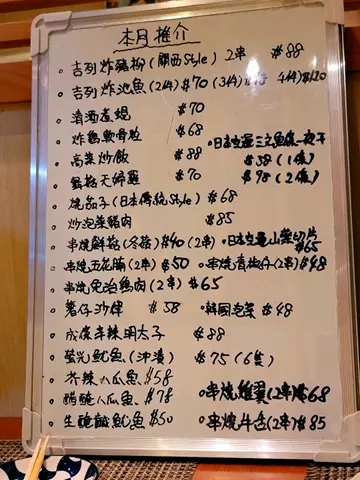 本月推介
吉列炸豬柳(関西Style) 2串 $88
吉列炸池魚(2件)$70 (3件) 4件$120
清酒煮蜆 $70
炸鷄軟骨粒 $68
高菜炒飯 $88
・日本空運三文魚 一夜干
$58 (1條)
鮮菇天婦羅 $70
$98 (2條)
燒茄子(日本傳統Style) $68
炒泡菜豬肉 $85
串燒鮮菇(冬菇)$40(2串)
・日本空運山葵切片
$65
串燒五花腩(2串)$50
・串燒青椒仔(2串)$48
串燒免治鷄肉(2串)$65
薯仔沙律 $58
・韓國泡菜 $48
成條辛辣明太子 $88
螢光魷魚(沖漬) $75(6隻)
芥辣八爪魚$58
醋醃八爪魚$78
・串燒雞翼(2串)$68
生醃鹹魷魚$50
・串燒牛舌(2串)$85